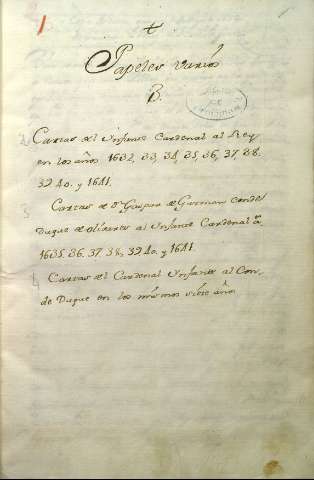 1
+
Papeles varios
B.
2 Cartas del Ynfante Cardenal al Rey
en los años 1632, 33, 34, 35, 36, 37. 38.
39 40. y 1641.
3 Cartas de Dn Gaspar de Guzman conde
Duque de olivares al Ynfante Cardenal
1635. 36. 37. 38, 39 40. y 1641.
4 Cartas del Cardenal Ynfante al Con-
de Duque en los mismos siete años